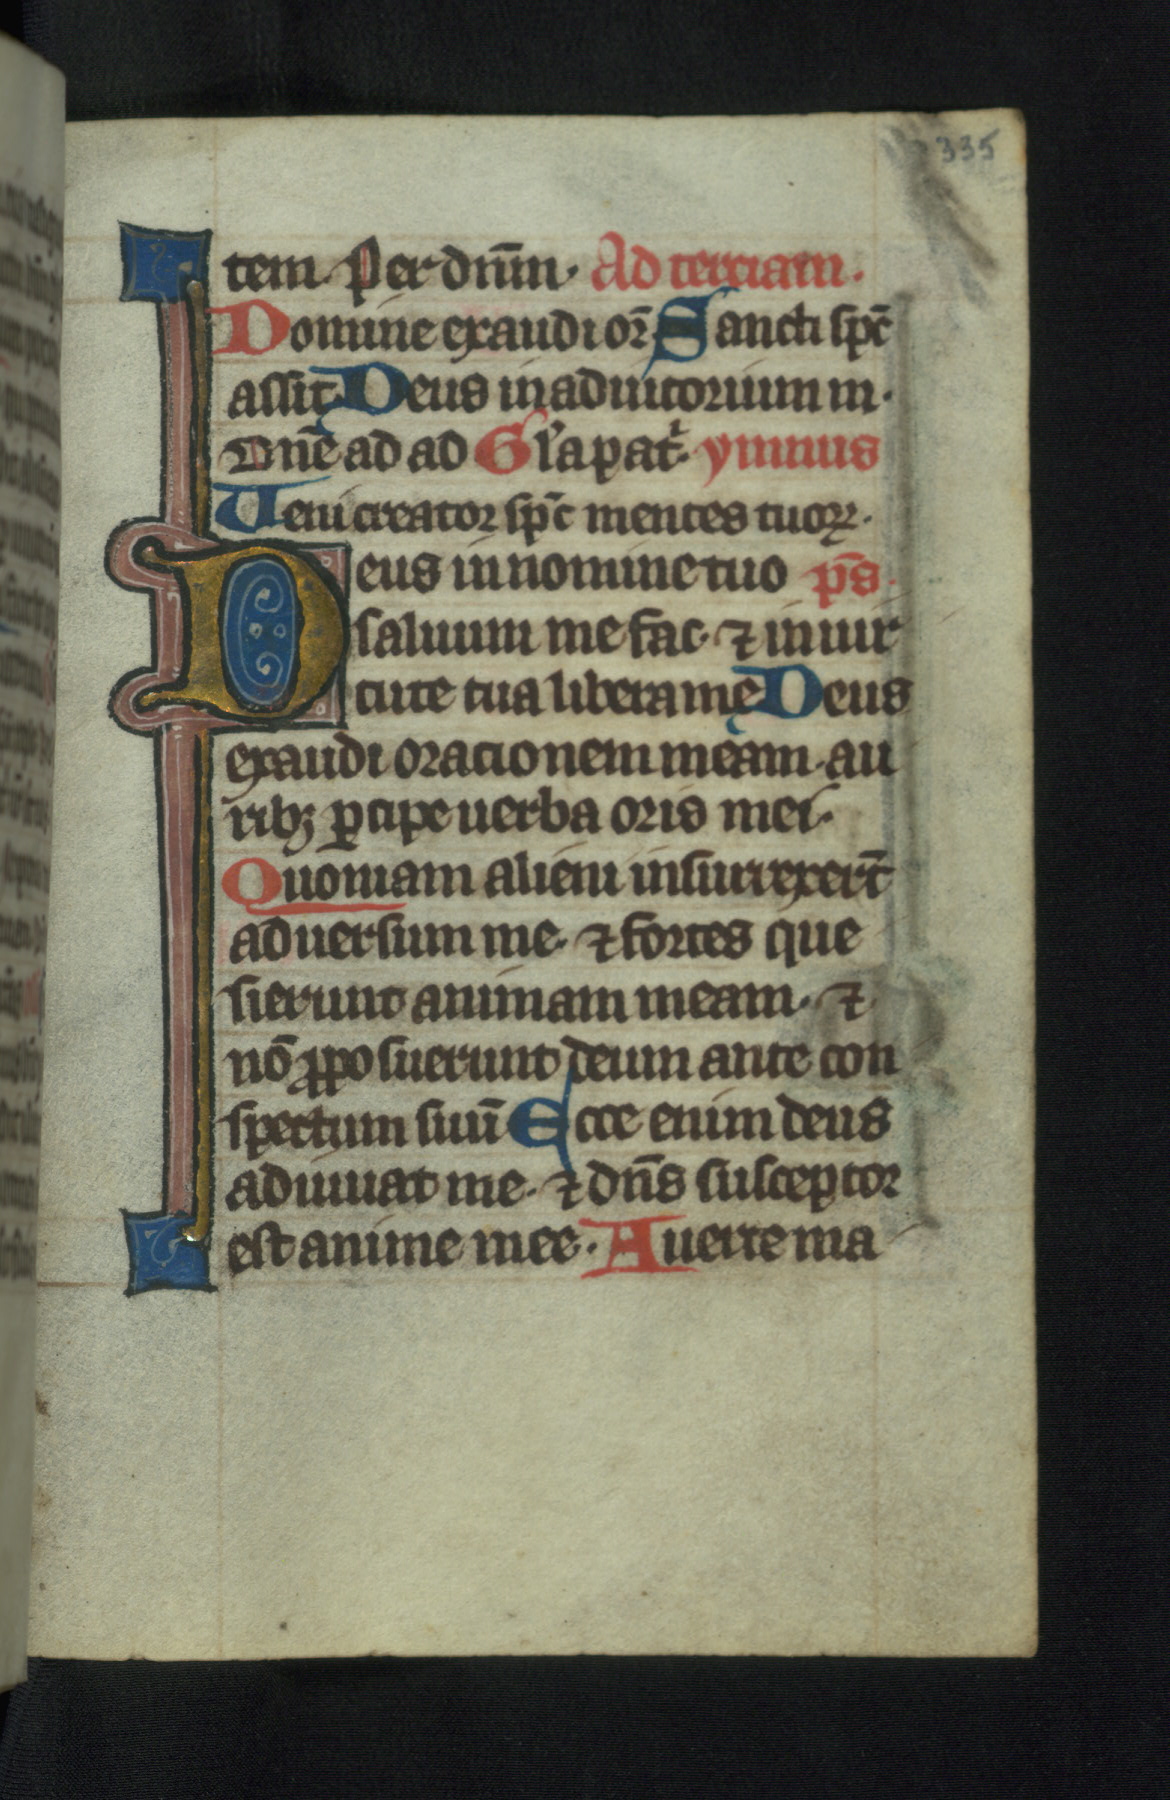 335
tem. Per dn̄m. Ad terciam.
Domine exaudi or̄ Sancti sp̄c
assit Deus in adiutorium m.
Dn̄e ad ad Gl'a pat̄. ymnus
Ueni creator sp̄c mentes tuorꝝ.
Deus in nomine tuo p̄s.
saluum me fac. ⁊ in uir
tute tua libera me Deus
exaudi oracionem meam. au
ribꝫ ꝑcipe uerba oris mei.
Quoniam alieni insurrexer̄t
aduersum me. ⁊ fortes que
sierunt animam meam. ⁊
nō ꝓposuerunt deum ante con
spectum suū Ecce enim deus
adiuuat me. ⁊ dn̄s susceptor
est anime mee. Auerte ma